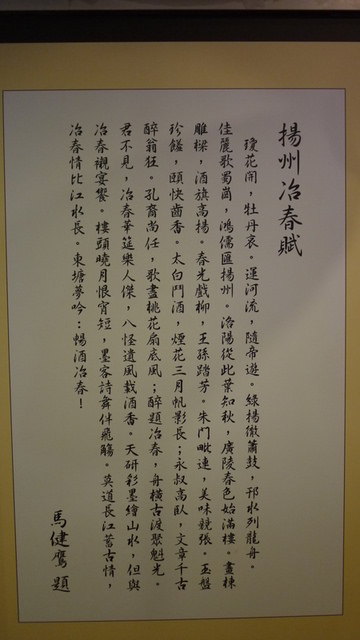 揚州冶春賦
瓊花開，牡丹哀。運河流，隨帝遊。綠楊徹簫鼓，邗水列龍舟。
佳麗歌蜀崗，鴻儒匯揚州。洛陽從此葉知秋，廣陵春色始滿樓。畫棟
雕樑，酒旗高揚。春光戲柳，王孫踏芳。朱門毗連，美味競張。玉盤
珍饈，頤快齒香。太白鬥酒，煙花三月帆影長；永叔高臥，文章千古
醉翁狂。孔裔尚任，歌盡桃花扇底風；醉題冶春，舟橫古渡聚魁光。
君不見，冶春華筵樂人傑，八怪遺風載酒香。天研彩墨繪山水，但與
冶春襯宴饗。樓頭曉月恨宵短，墨客詩舞伴飛觴。莫道長江蓄古情，
冶春情比江水長。東塘夢吟：暢酒冶春！
馬健鷹 題